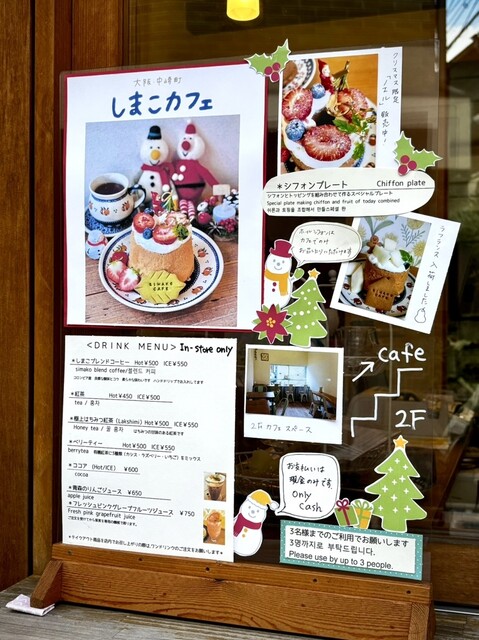 大阪・中崎町
しまこカフェ
SIMAKO CAFE
クリスマス限定
「ノエル」販売中!
*シフォンプレート Chiffon plate
シフォンとトッピングを組み合わせて作るスペシャルプレート
Special plate making chiffon and fruit of today combined
ラフランス入荷しました
<DRINK MENU> In-store only
*しまこブレンドコーヒー Hot¥500 ICE¥550
simako blend coffee/블랜드 커피
*紅茶 Hot¥450 ICE¥500
tea / 홍차
*極上はちみつ紅茶 (Lakshimi) Hot¥500
Honey tea / 꿀 홍차
*ベリーティー Hot¥500 ICE¥550
berrytea
*ココア (Hot/ICE) ¥600
cocoa
*青森のりんごジュース ¥650
apple juice
*フレッシュピンクグレープフルーツジュース ¥750
Fresh pink grapefruit juice
cafe
2F
2Fカフェスペース
お支払いは
現金のみです
Only
Cash
3名様までのご利用でお願いします
3명까지로 부탁드립니다.
Please use by up to 3 people.